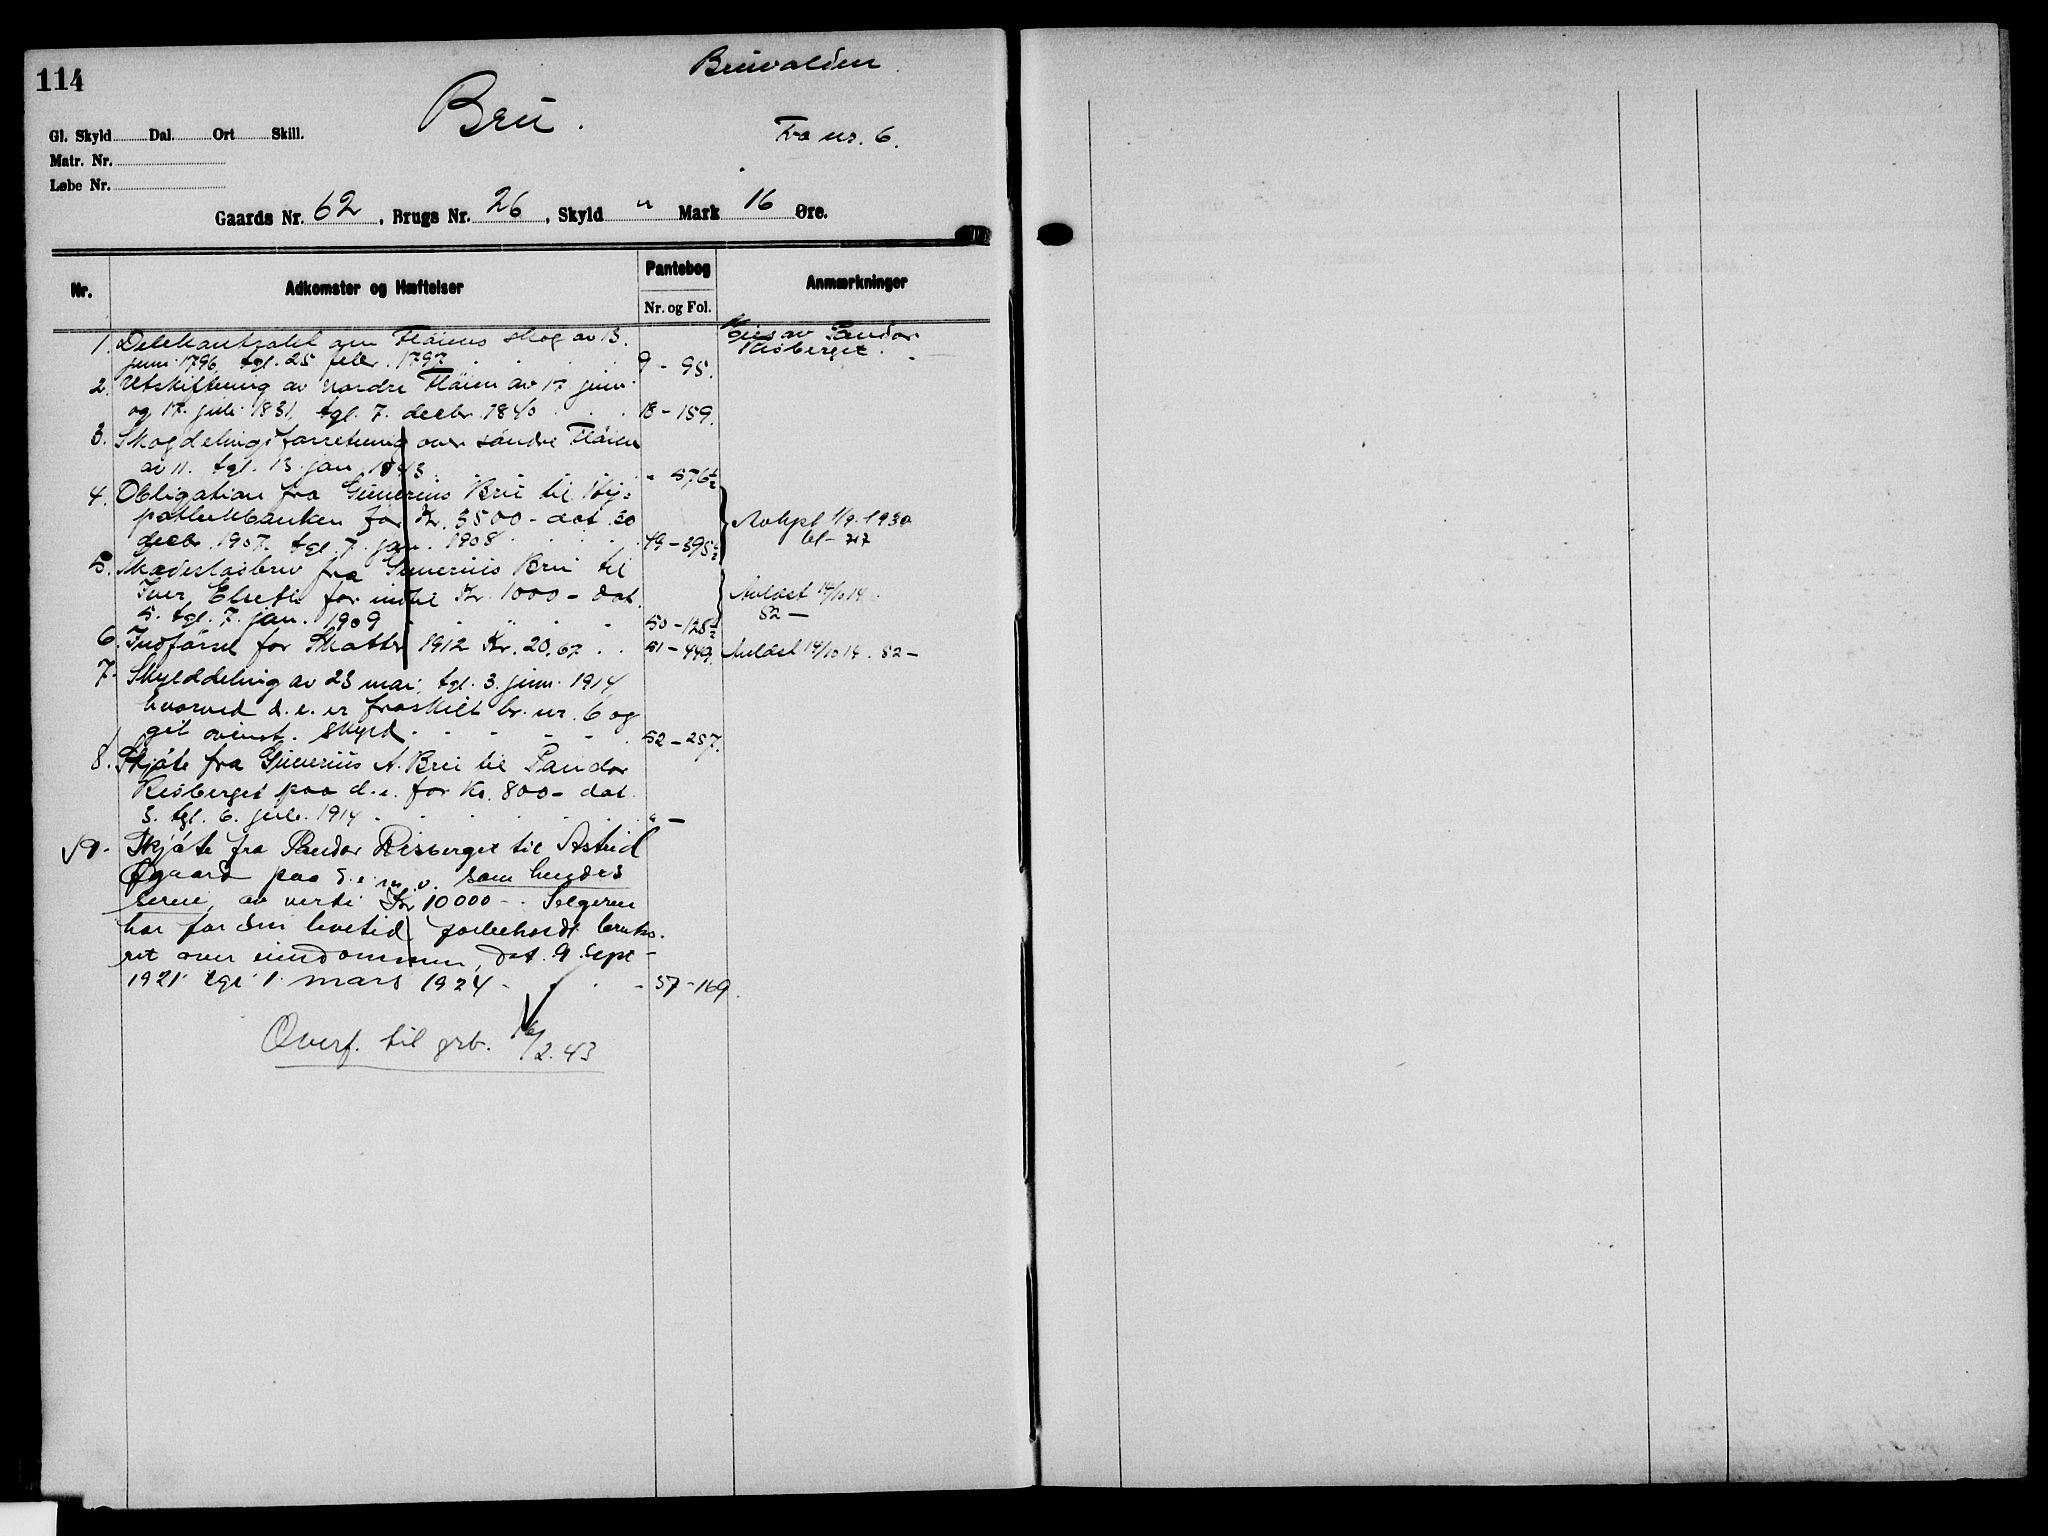 114
Bruvolden
Bru.
Fra nr. 6.
Gl. Skyld Dal. Ort Skill.
Matr. Nr.
Løbe Nr.
Gaards Nr. 62, Brugs Nr. 26, Skyld " Mark 16 Øre.
Nr. Adkomster og Hæftelser Pantebog Anmærkninger
Nr. og Fol.
1. Delekontrakt om Fløiens skog av 13. Eies av Pauder
juni 1796, tgl. 25 febr. 1797 9 - 95. Risberget.
2. Utskiftning av nordre Fløien av 17. juni
og 17. juli 1831, tgl. 7. decbr. 1840 18 - 159.
3. Skogdelingsforretning over søndre Fløien
av 11. tgl. 13. jan. 1843. " 576½
4. Obligation fra Gunerius Bru til Hy-
pothekbanken for Kr. 3500 - dat. 30 Avlyst 1/9 1930
decbr. 1907. tgl. 7. jan. 1908 49 - 395½ bl - 717
5. Skadesløsbrev fra Gunerius Bru til
Iver Elseth for indtil Kr. 1000 - dat. Avlæst 14/10 14.
5. tgl. 7. jan. 1909 50 - 128½ 52 -
6. Indførsel for Skatter 1912 Kr. 20.67. 51 - 449. Avlæst 14/10 14. 52 -
7. Skylddeling av 23 mai, tgl. 3. juni 1914,
hvorved d. e. er fraskilt br. nr. 6 og
git ovenst. skyld 52 - 257.
8. Skjøte fra Gunerius A. Bru til Pauder
Risberget paa d. e. for Kr. 800 - dat.
3. tgl. 6. juli 1914 " -
9. Skjøte fra Pauder Risberget til Astrid
Øgaard paa d. e. m. v. som hendes
særeie, av verdi Kr 10000 - . Selgeren
har for sin levetid forbeholdt bruks-
ret over eiendommen, dat. 9. Sept
1921 tgl 1. mars 1924 57 - 169.
Overf. til grb. 16/2.43